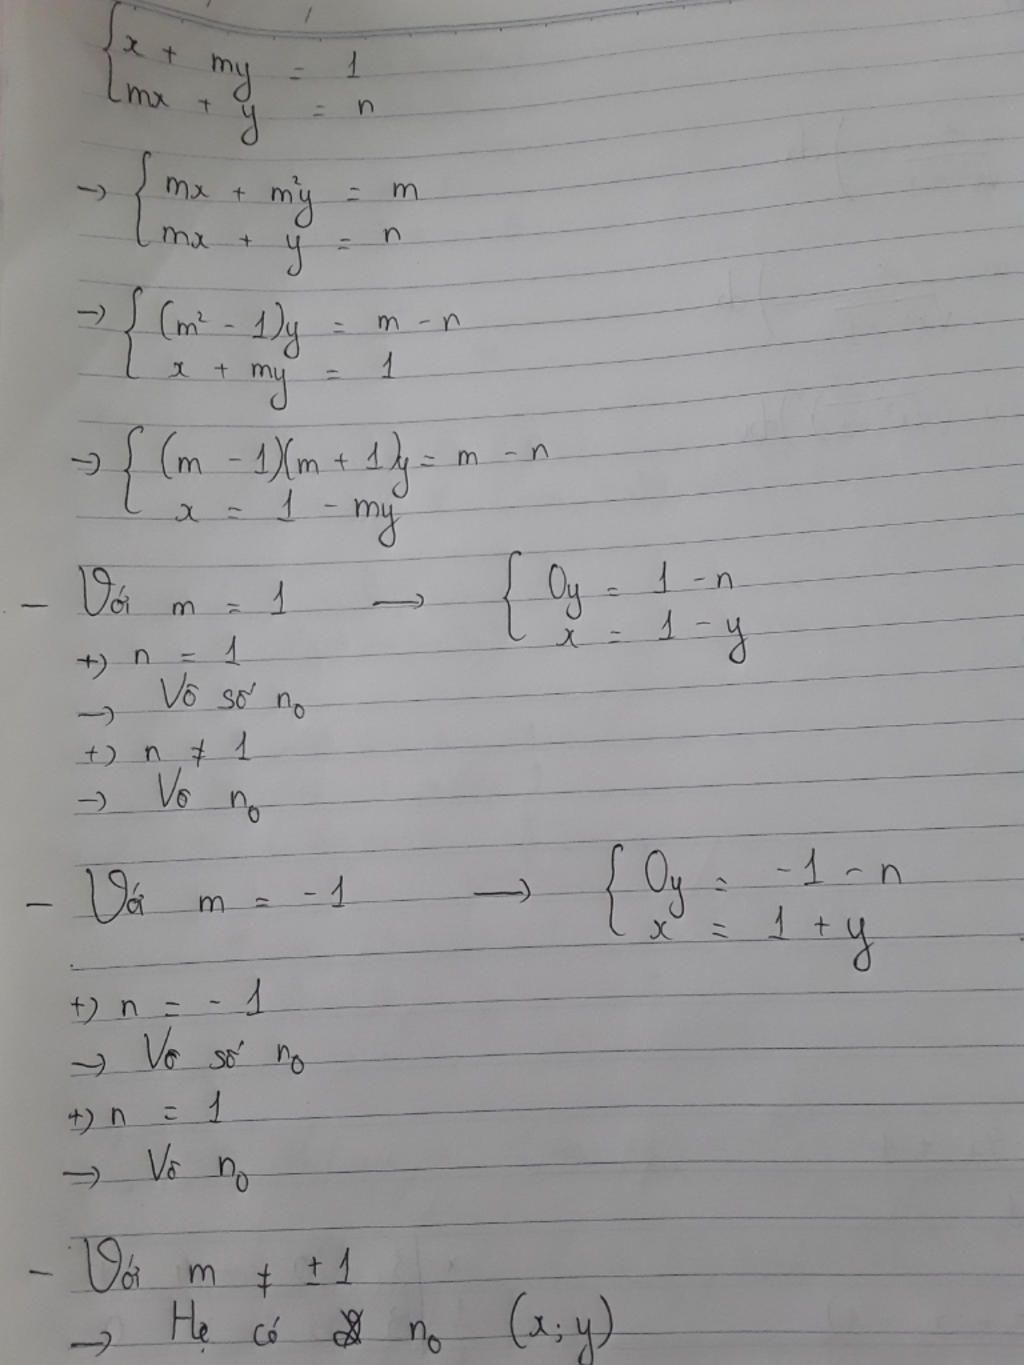 { x + my = 1
mx + y = n
→ { mx + m²y = m
mx + y = n
→ { (m² - 1)y = m - n
x + my = 1
→ { (m - 1)(m + 1)y = m - n
x = 1 - my
- Với m = 1 → { 0y = 1 - n
x = 1 - y
+) n = 1
→ Vô số n₀
+) n ≠ 1
→ Vô n₀
- Với m = -1 → { 0y = -1 - n
x = 1 + y
+) n = -1
→ Vô số n₀
+) n = 1
→ Vô n₀
- Với m ≠ ±1
→ Hệ có n₀ (x; y)